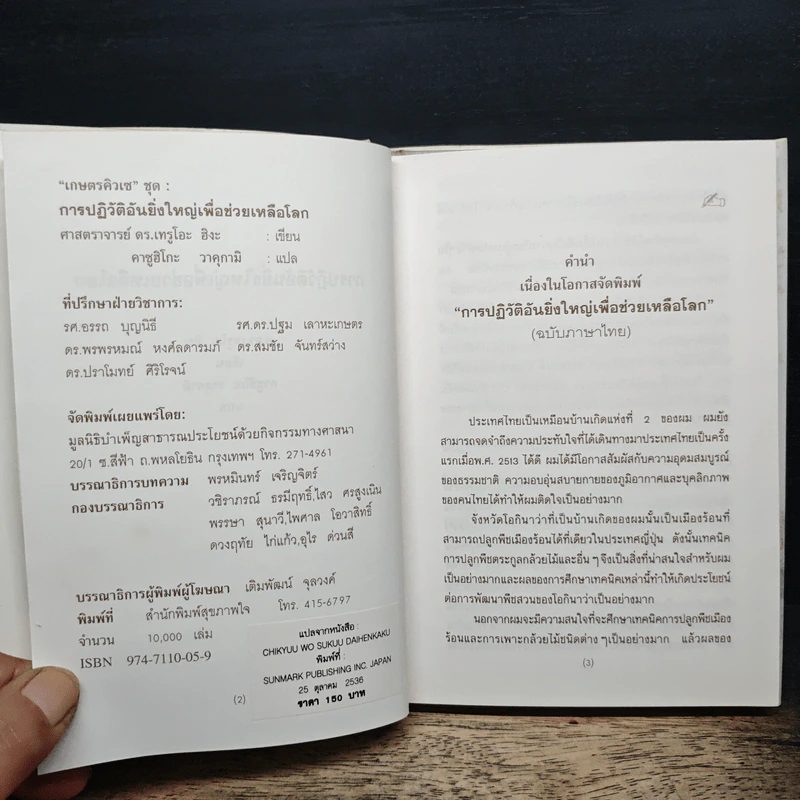 "เกษตรคิวเซ" ชุด :
การปฏิวัติอันยิ่งใหญ่เพื่อช่วยเหลือโลก
ศาสตราจารย์ ดร.เทรูโอะ ฮิงะ : เขียน
คาซูฮิโกะ วาคุกามิ : แปล
ที่ปรึกษาฝ่ายวิชาการ:
รศ.อรรถ บุญนิธี รศ.ดร.ปฐม เลาหะเกษตร
ดร.พรพรหมณ์ หงศ์ลดารมภ์ ดร.สมชัย จันทร์สว่าง
ดร.ปราโมทย์ ศิริโรจน์
จัดพิมพ์เผยแพร่โดย:
มูลนิธิบำเพ็ญสาธารณประโยชน์ด้วยกิจกรรมทางศาสนา
20/1 ซ.สีฟ้า ถ.พหลโยธิน กรุงเทพฯ โทร. 271-4961
บรรณาธิการบทความ พรหมินทร์ เจริญจิตร์
กองบรรณาธิการ วชิราภรณ์ ธรมีฤทธิ์,ไสว ศรสูงเนิน
พรรษา สุนาวี,ไพศาล โอวาสิทธิ์
ดวงฤทัย ไก่แก้ว,อุไร ด่วนสี
บรรณาธิการผู้พิมพ์ผู้โฆษณา เติมพัฒน์ จุลวงค์
พิมพ์ที่ สำนักพิมพ์สุขภาพใจ โทร. 415-6797
จำนวน 10,000 เล่ม
ISBN 974-7110-05-9
แปลจากหนังสือ :
CHIKYUU WO SUKUU DAIHENKAKU
พิมพ์ที่ :
SUNMARK PUBLISHING INC. JAPAN
25 ตุลาคม 2536
ราคา 150 บาท
(2)
คำนำ
เนื่องในโอกาสจัดพิมพ์
"การปฏิวัติอันยิ่งใหญ่เพื่อช่วยเหลือโลก"
(ฉบับภาษาไทย)
ประเทศไทยเป็นเหมือนบ้านเกิดแห่งที่ 2 ของผม ผมยัง
สามารถจดจำถึงความประทับใจที่ได้เดินทางมาประเทศไทยเป็นครั้ง
แรกเมื่อพ.ศ. 2513 ได้ดี ผมได้มีโอกาสสัมผัสกับความอุดมสมบูรณ์
ของธรรมชาติ ความอบอุ่นสบายกายของภูมิอากาศและบุคลิกภาพ
ของคนไทยได้ทำให้ผมติดใจเป็นอย่างมาก
จังหวัดโอกินาว่าที่เป็นบ้านเกิดของผมนั้นเป็นเมืองร้อนที่
สามารถปลูกพืชเมืองร้อนได้ที่เดียวในประเทศญี่ปุ่น ดังนั้นเทคนิค
การปลูกพืชตระกูลกล้วยไม้และอื่น ๆจึงเป็นสิ่งที่น่าสนใจสำหรับผม
เป็นอย่างมากและผลของการศึกษาเทคนิคเหล่านี้ทำให้เกิดประโยชน์
ต่อการพัฒนาพืชสวนของโอกินาว่าเป็นอย่างมาก
นอกจากผมจะมีความสนใจที่จะศึกษาเทคนิคการปลูกพืชเมือง
ร้อนและการเพาะกล้วยไม้ชนิดต่าง ๆเป็นอย่างมาก แล้วผลของ
(3)